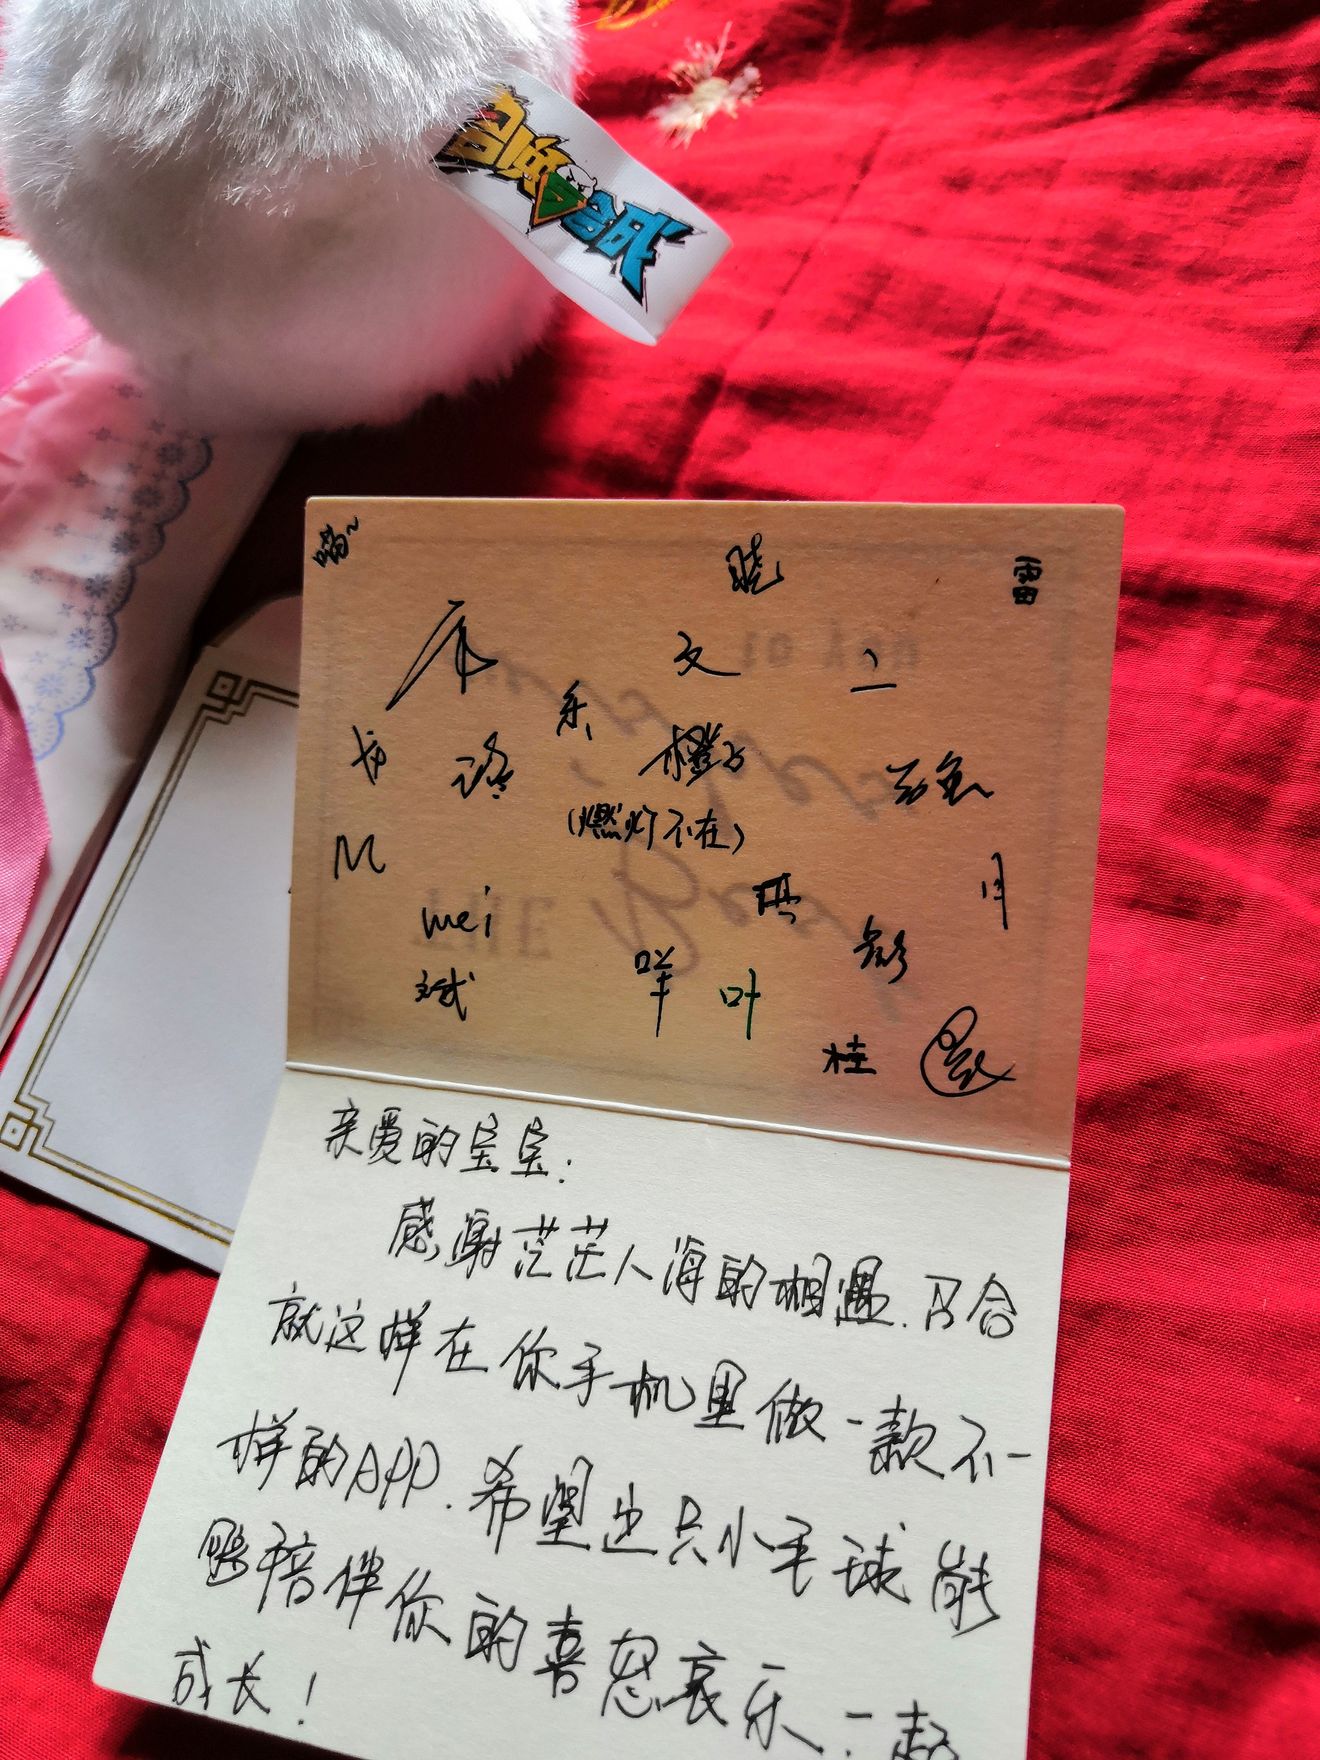 喵~
晓
雷
文
乐
橙子
(燃灯不在)
M
mei
斌
咩
叶
彭
月
桂
亲爱的宝宝:
感谢茫茫人海的相遇.召合
就这样在你手机里做一款不一
样的APP.希望这只小毛球能
够陪伴你的喜怒哀乐.一起
成长!